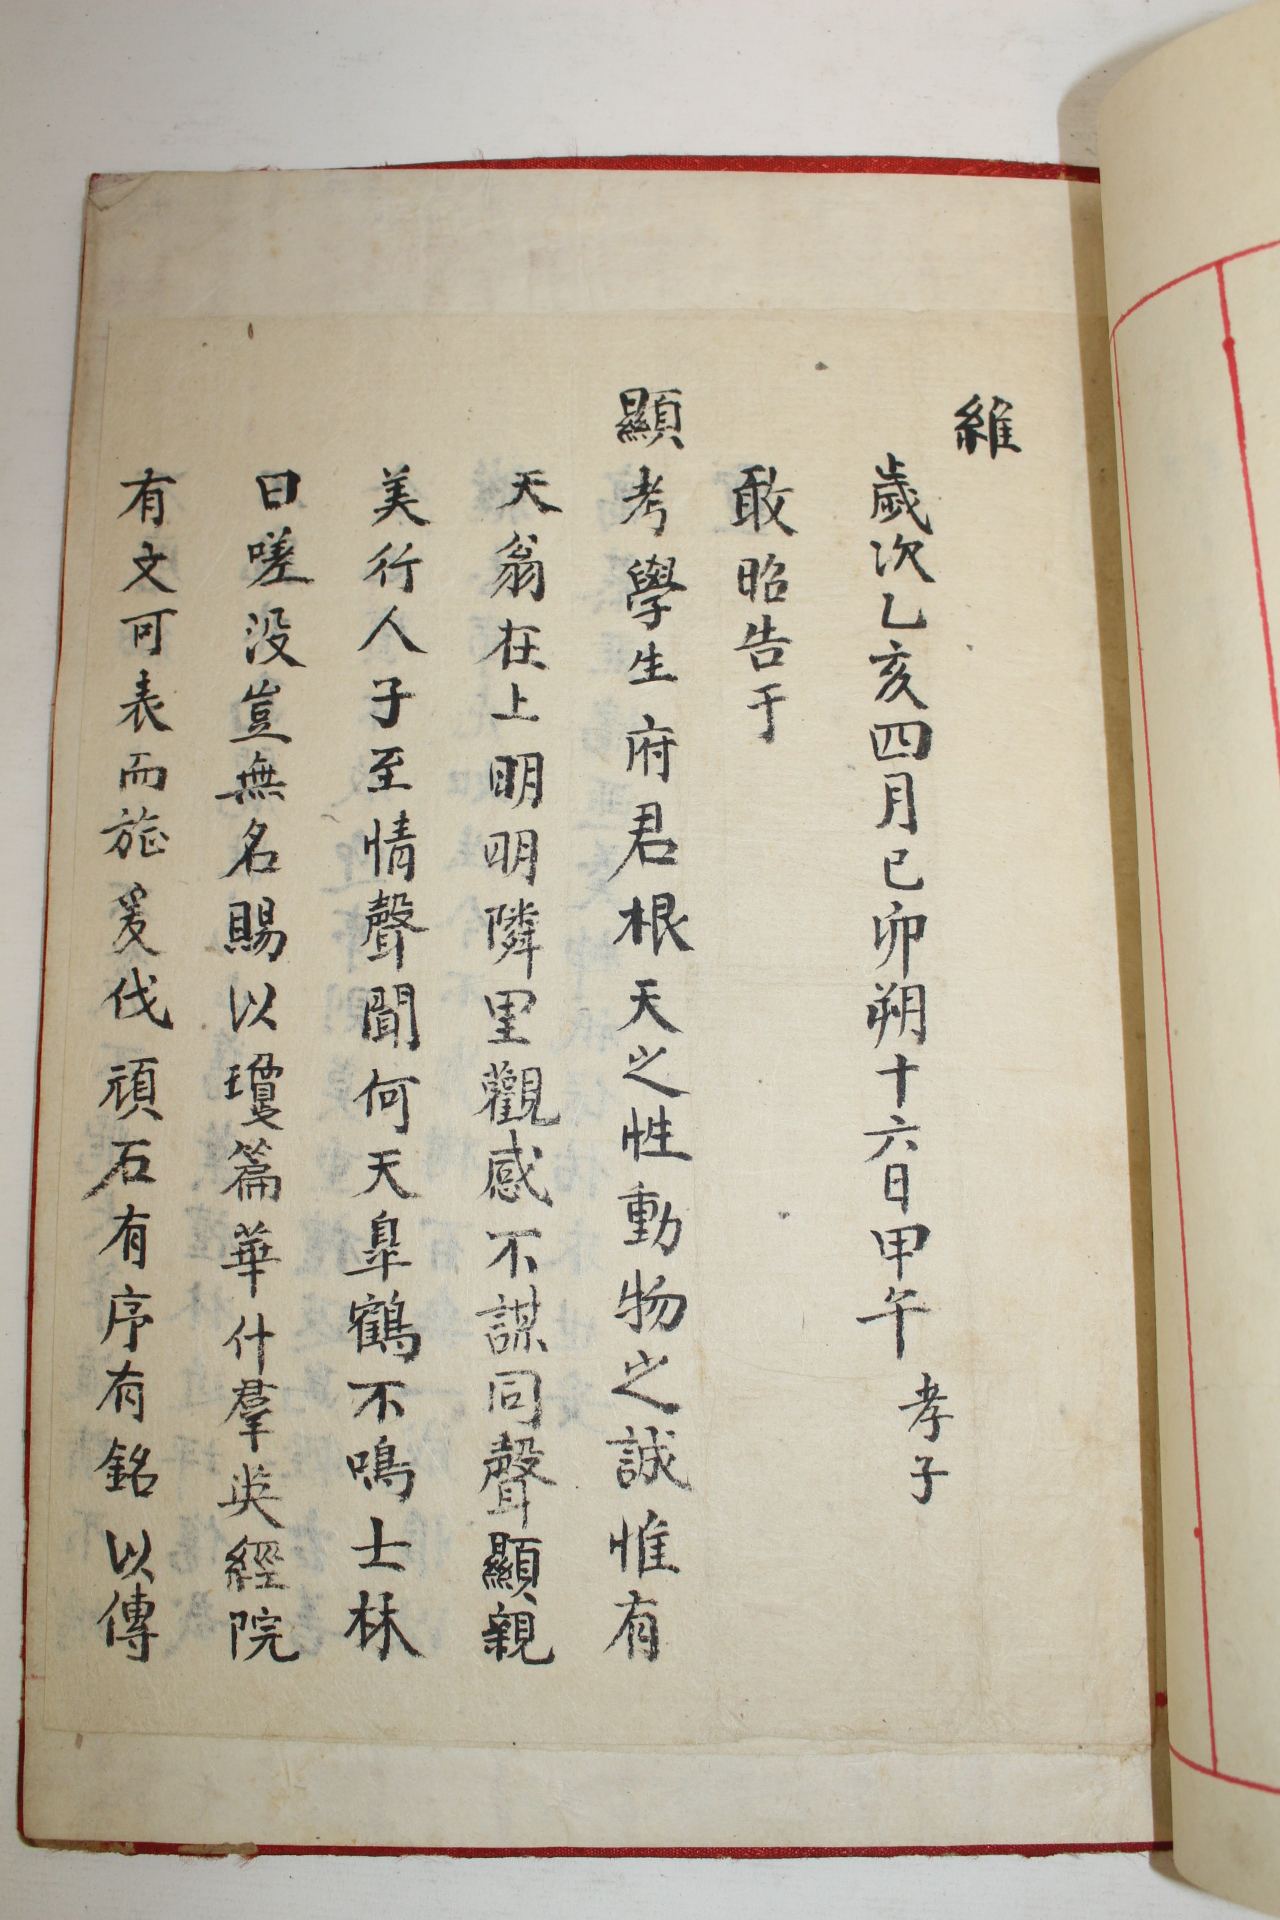 維
歲次乙亥四月己卯朔十六日甲午 孝子
敢昭告于
顯考學生府君根天之性動物之誠惟有
天翁在上明明隣里觀感不謀同聲顯親
美行人子至情聲聞何天臯鶴不鳴士林
曰嗟没豈無名賜以瓊篇華什羣英經院
有文可表而旌爰伐頑石有序有銘以傳